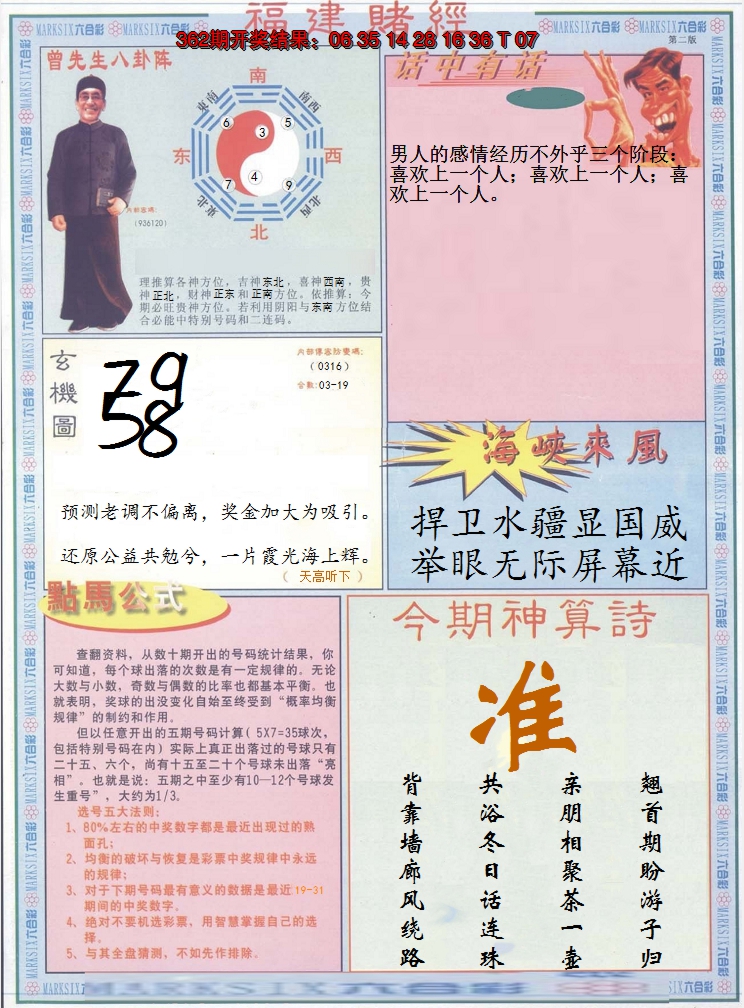 福建賭經
362期开奖结果：06 35 14 28 16 36 T 07
MARKSIX六合彩
第二版
曾先生八卦阵
南
東南
南西
6
3
5
东
西
7
4
9
東北
北西
北
內部密碼：
（936120）
理推算各神方位，吉神东北，喜神西南，贵
神正北，财神正东和正南方位。依推算：今
期必旺贵神方位。若利用阴阳与东南方位结
合必能中特别号码和二连码。
话中有话
男人的感情经历不外乎三个阶段：
喜欢上一个人；喜欢上一个人；喜
欢上一个人。
玄機圖
79
58
內部傳密防變碼：
（0316）
合數：03-19
预测老调不偏离，奖金加大为吸引。
还原公益共勉兮，一片霞光海上辉。
（ 天高听下 ）
海峽來風
捍卫水疆显国威
举眼无际屏幕近
點馬公式
查翻资料，从数十期开出的号码统计结果，你
可知道，每个球出落的次数是有一定规律的。无论
大数与小数，奇数与偶数的比率也都基本平衡。也
就表明，奖球的出没变化自始至终受到“概率均衡
规律”的制约和作用。
但以任意开出的五期号码计算（ 5X7=35球次，
包括特别号码在内）实际上真正出落过的号球只有
二十五、六个，尚有十五至二十个号球未出落“亮
相”。也就是说：五期之中至少有10—12个号球发
生重号”，大约为1/3。
选号五大法则：
1、80%左右的中奖数字都是最近出现过的熟
面孔；
2、均衡的破坏与恢复是彩票中奖规律中永远
的规律；
3、对于下期号码最有意义的数据是最近19-31
期间的中奖数字。
4、绝对不要机选彩票，用智慧掌握自己的选
择。
5、与其全盘猜测，不如先作排除。
今期神算詩
准
翘首期盼游子归
亲朋相聚茶一壶
共浴冬日话连珠
背靠墙廊风绕路